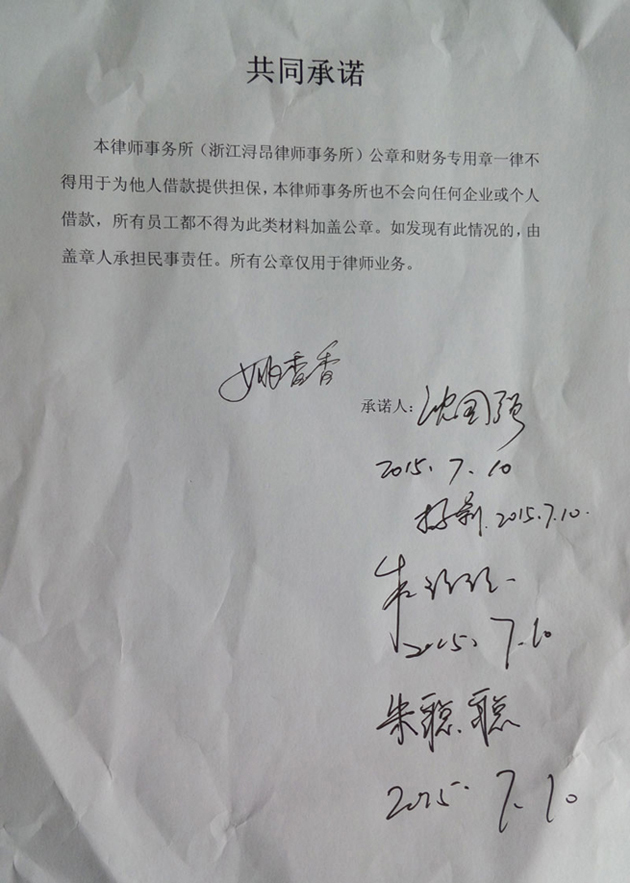 共同承诺
本律师事务所（浙江浔昂律师事务所）公章和财务专用章一律不
得用于为他人借款提供担保，本律师事务所也不会向任何企业或个人
借款，所有员工都不得为此类材料加盖公章。如发现有此情况的，由
盖章人承担民事责任。所有公章仅用于律师业务。
姚香香
承诺人：沈国强
2015.7.10
2015.7.10.
朱
2015.7.10
朱聪聪
2015.7.10